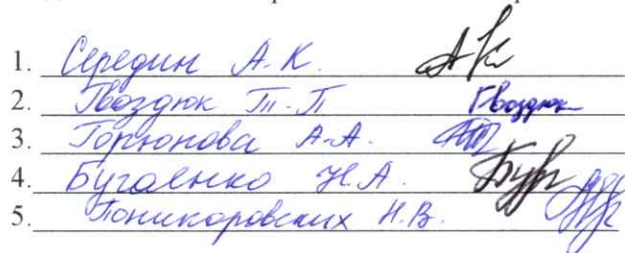 1. Середин А.К.
2. Гвоздюк Т.П. Гвоздюк
3. Горюнова А.А.
4. Бугаенко Н.А.
5. Поникаровских Н.В.